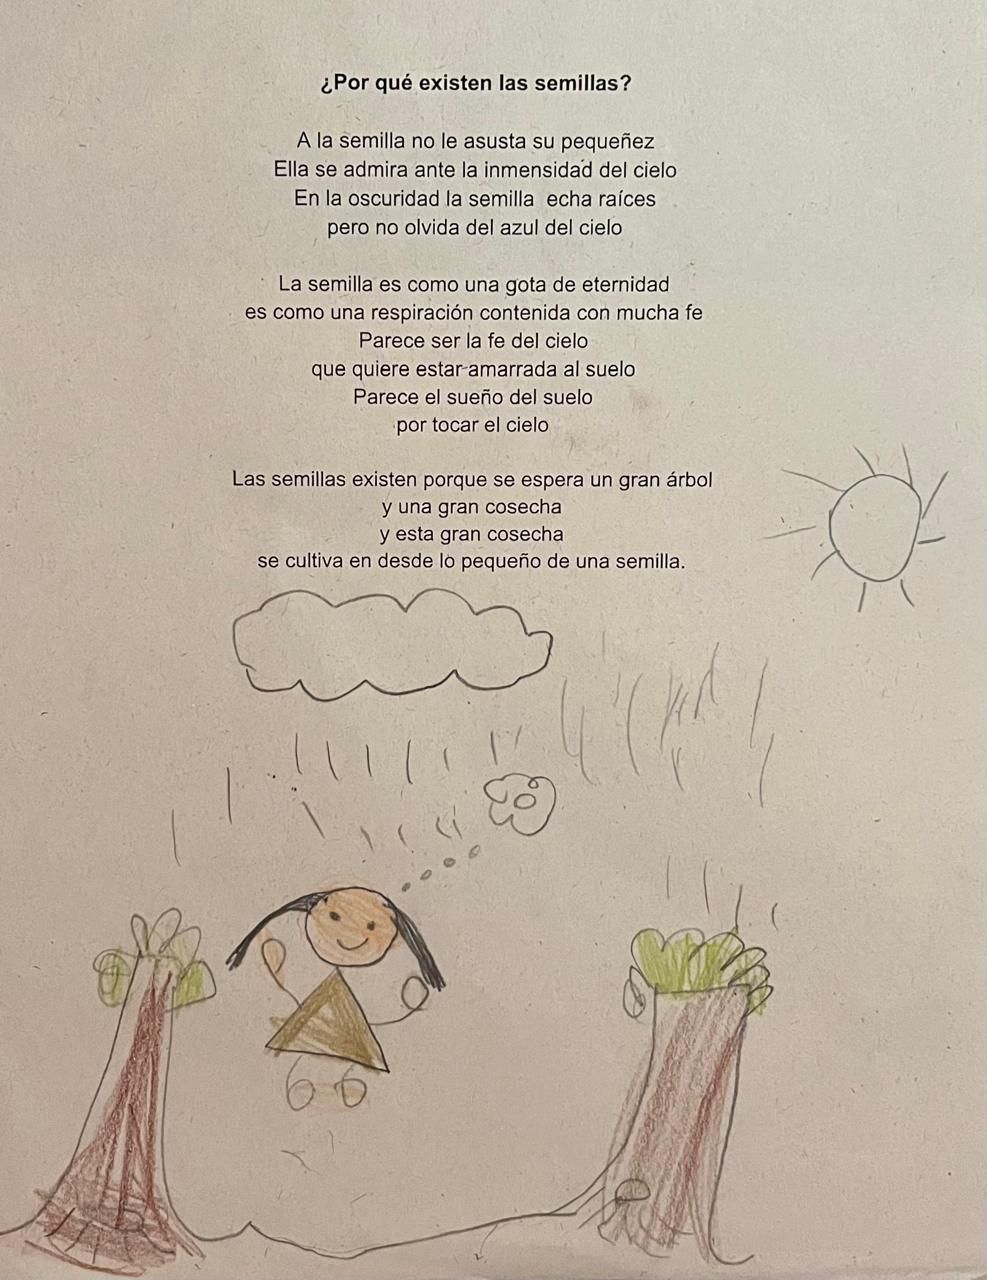 ¿Por qué existen las semillas?
A la semilla no le asusta su pequeñez
Ella se admira ante la inmensidad del cielo
En la oscuridad la semilla  echa raíces
pero no olvida del azul del cielo
La semilla es como una gota de eternidad
es como una respiración contenida con mucha fe
Parece ser la fe del cielo
que quiere estar amarrada al suelo
Parece el sueño del suelo
por tocar el cielo
Las semillas existen porque se espera un gran árbol
y una gran cosecha
y esta gran cosecha
se cultiva en desde lo pequeño de una semilla.